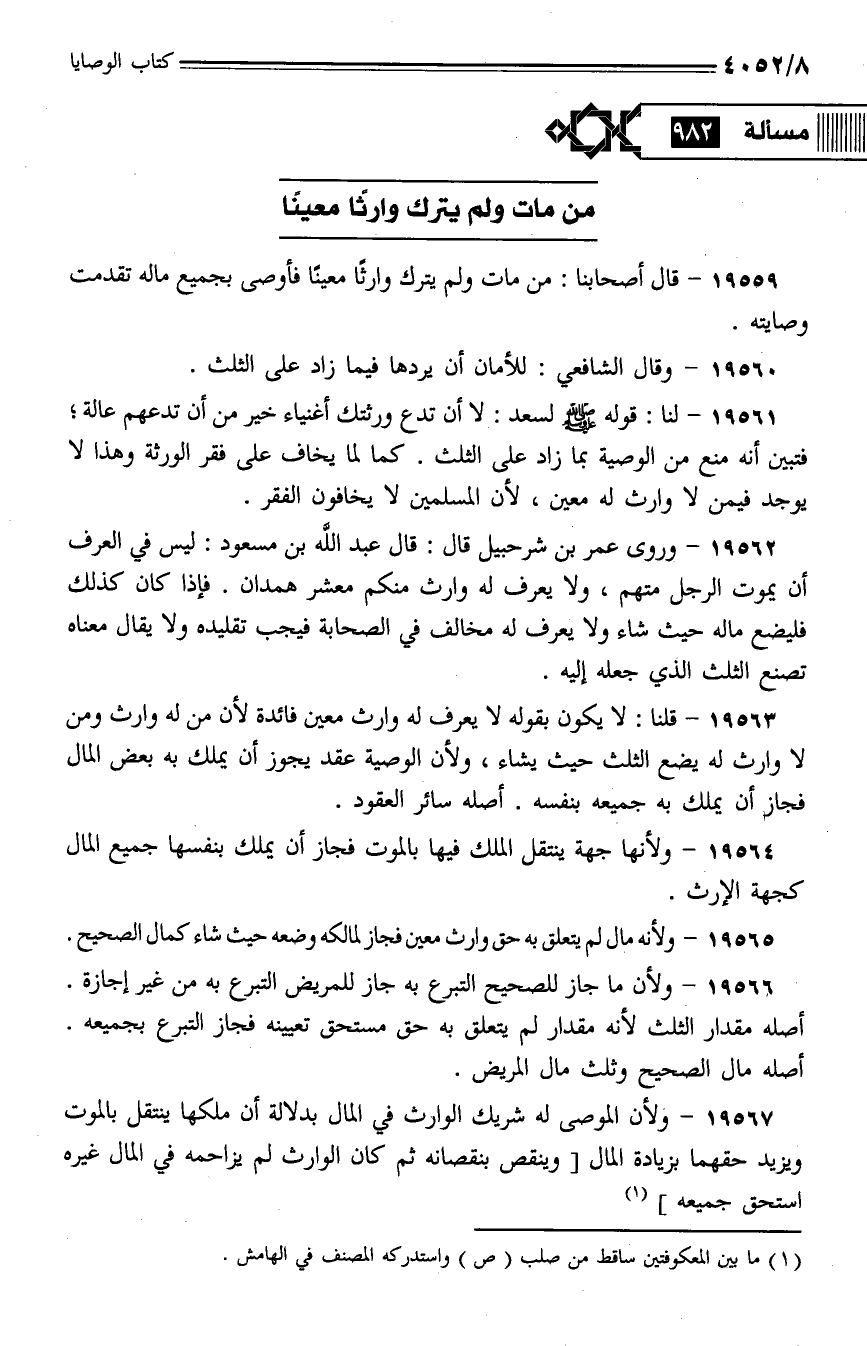 ٤٠٥٢/٨ كتاب الوصايا
مسألة ٩٨٢
من مات ولم يترك وارثًا معينًا
١٩٥٥٩ – قال أصحابنا : من مات ولم يترك وارثًا معينًا فأوصى بجميع ماله تقدمت
وصايته .
١٩٥٦٠ – وقال الشافعي : للأمان أن يردها فيما زاد على الثلث .
١٩٥٦١ – لنا : قوله ﷺ لسعد : لا أن تدع ورثتك أغنياء خير من أن تدعهم عالة ؛
فتبين أنه منع من الوصية بما زاد على الثلث . كما لما يخاف على فقر الورثة وهذا لا
يوجد فيمن لا وارث له معين ، لأن المسلمين لا يخافون الفقر .
١٩٥٦٢ – وروى عمر بن شرحبيل قال : قال عبد اللَّه بن مسعود : ليس في العرف
أن يموت الرجل متهم ، ولا يعرف له وارث منكم معشر همدان . فإذا كان كذلك
فليضع ماله حيث شاء ولا يعرف له مخالف في الصحابة فيجب تقليده ولا يقال معناه
تصنع الثلث الذي جعله إليه .
١٩٥٦٣ – قلنا : لا يكون بقوله لا يعرف له وارث معين فائدة لأن من له وارث ومن
لا وارث له يضع الثلث حيث يشاء ، ولأن الوصية عقد يجوز أن يملك به بعض المال
فجاز أن يملك به جميعه بنفسه . أصله سائر العقود .
١٩٥٦٤ – ولأنها جهة ينتقل الملك فيها بالموت فجاز أن يملك بنفسها جميع المال
كجهة الإرث .
١٩٥٦٥ – ولأنه مال لم يتعلق به حق وارث معين فجاز لمالكه وضعه حيث شاء كمال الصحيح .
١٩٥٦٦ – ولأن ما جاز للصحيح التبرع به جاز للمريض التبرع به من غير إجازة .
أصله مقدار الثلث لأنه مقدار لم يتعلق به حق مستحق تعيينه فجاز التبرع بجميعه .
أصله مال الصحيح وثلث مال المريض .
١٩٥٦٧ – ولأن الموصى له شريك الوارث في المال بدلالة أن ملكها ينتقل بالموت
ويزيد حقهما بزيادة المال [ وينقص بنقصانه ثم كان الوارث لم يزاحمه في المال غيره
استحق جميعه ] (١)
(١) ما بين المعكوفتين ساقط من صلب ( ص ) واستدركه المصنف في الهامش .